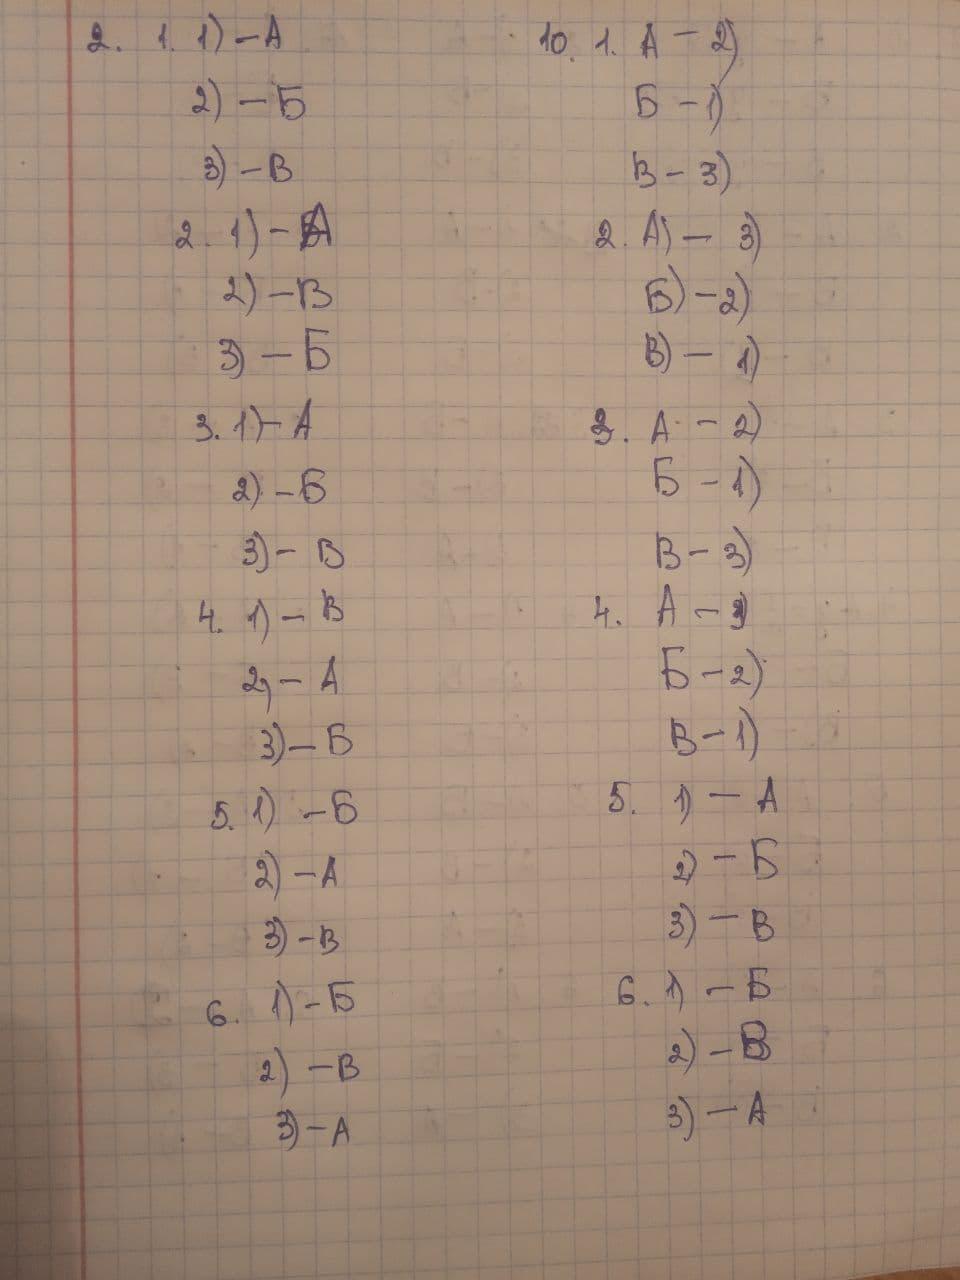 2. 1. 1) - А
2) - Б
3) - В
2. 1) - А
2) - В
3) - Б
3. 1) - А
2) - Б
3) - В
4. 1) - В
2) - А
3) - Б
5. 1) - Б
2) - А
3) - В
6. 1) - Б
2) - В
3) - А
10. 1. А - 2)
Б - 1)
В - 3)
2. А) - 3)
Б) - 2)
В) - 1)
3. А - 2)
Б - 1)
В - 3)
4. А -
Б - 2)
В - 1)
5. 1) - А
2) - Б
3) - В
6. 1) - Б
2) - В
3) - А